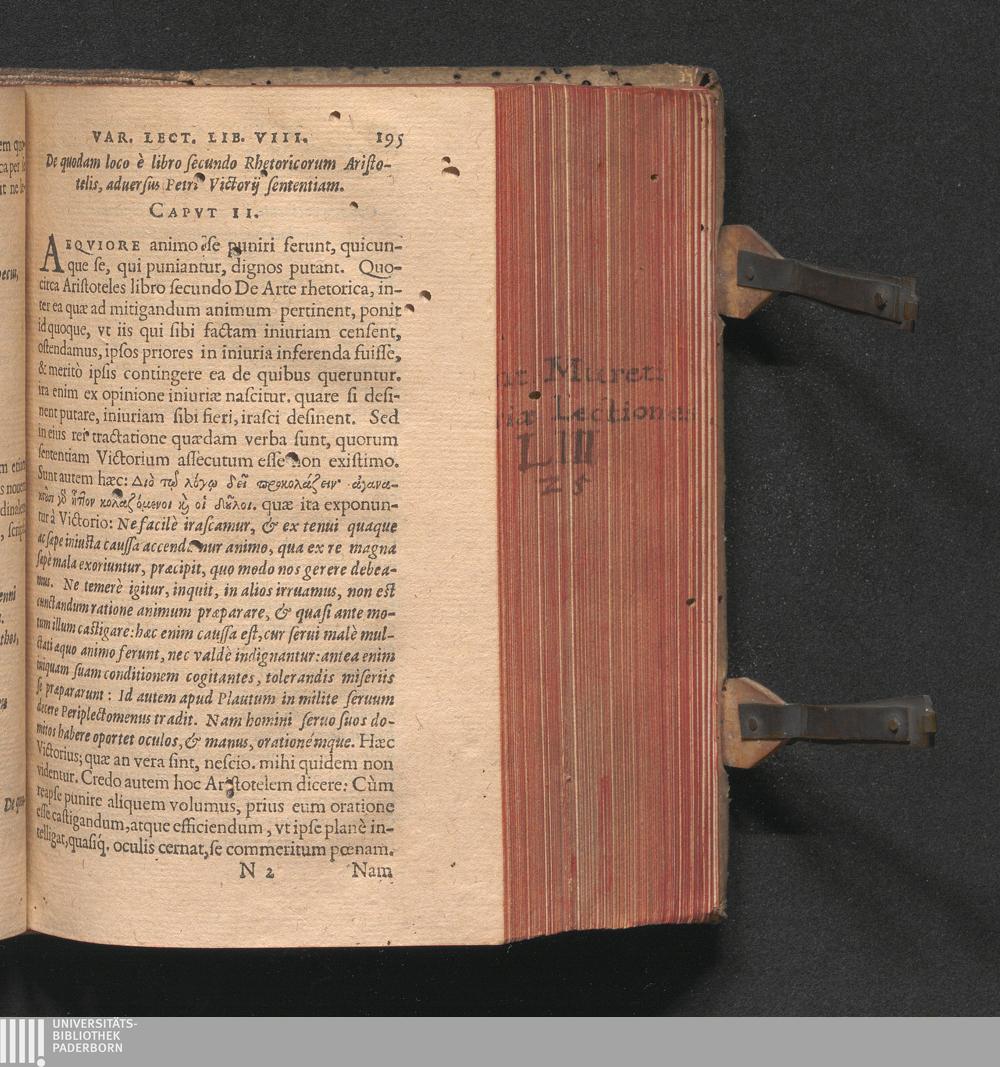 VAR. LECT. LIB. VIII. 195
De quodam loco è libro secundo Rhetoricorum Aristo-
telis, aduersus Petri Victorij sententiam.
CAPVT II.
AEQVIORE animo ese puniri ferunt, quicun-
que se, qui puniantur, dignos putant. Quo-
circa Aristoteles libro secundo De Arte rhetorica, in-
ter ea quæ ad mitigandum animum pertinent, ponit
id quoque, vt iis qui sibi factam iniuriam censent,
ostendamus, ipsos priores in iniuria inferenda fuisse,
& meritò ipsis contingere ea de quibus queruntur.
ira enim ex opinione iniuriæ nascitur. quare si desi-
nent putare, iniuriam sibi fieri, irasci desinent. Sed
in eius rei tractatione quædam verba sunt, quorum
sententiam Victorium assecutum esse non existimo.
Sunt autem hæc: Διὸ τῷ λόγῳ δεῖ προκολάζειν· ἀγανα-
κτῶσι γὸ ἧττον κολαζόμενοι κὶ οἱ δοῦλοι. quæ ita exponun-
tur à Victorio: Ne facilè irascamur, & ex tenui quaque
ac sæpe iniusta caussa accendamur animo, qua ex re magna
sæpè mala exoriuntur, præcipit, quo modo nos gerere debea-
mus. Ne temerè igitur, inquit, in alios irruamus, non est
cunctandum ratione animum præparare, & quasi ante mo-
tum illum castigare: hæc enim caussa est, cur serui malè mul-
ctati æquo animo ferunt, nec valdè indignantur: antea enim
iniquam suam conditionem cogitantes, tolerandis miseriis
se præpararunt: Id autem apud Plautum in milite seruum
dicere Periplectomenus tradit. Nam homini seruo suos do-
mitos habere oportet oculos, & manus, orationémque. Hæc
Victorius; quæ an vera sint, nescio. mihi quidem non
videntur. Credo autem hoc Aristotelem dicere: Cùm
reapse punire aliquem volumus, prius eum oratione
esse castigandum, atque efficiendum, vt ipse planè in-
telligat, quasiq́. oculis cernat, se commeritum pœnam.
N 2 Nam
Mureti
Lectiones
L III
25
UNIVERSITÄTS-
BIBLIOTHEK
PADERBORN